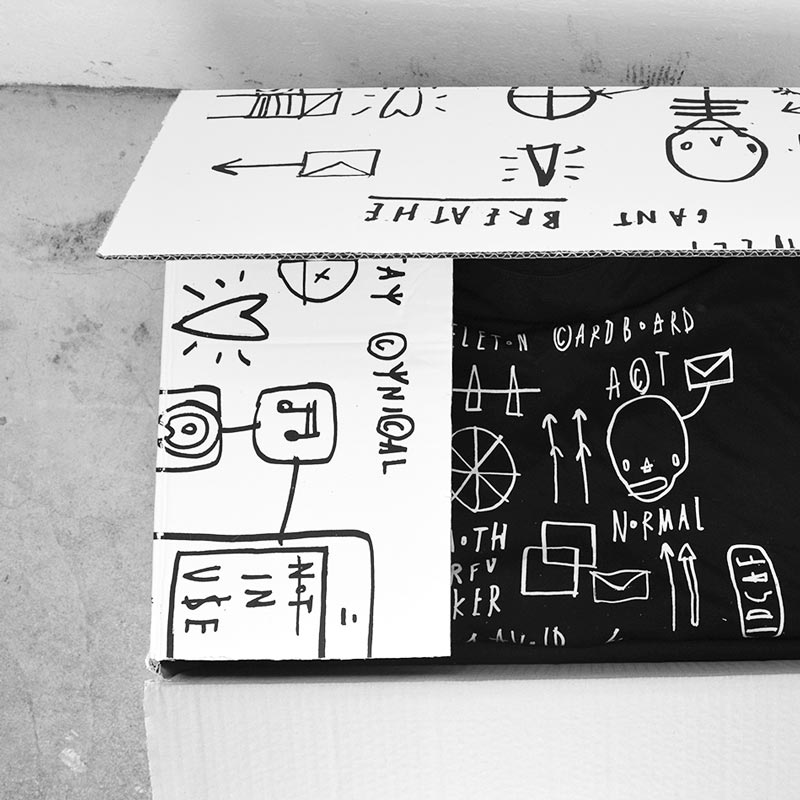 CANT BREATHE
TAY ©YNI©AL
NOT
IN
USE
ELETON ©ARDBOARD
A©T
NORMAL
OTH
RFU
KER
AVOID
IDGAF